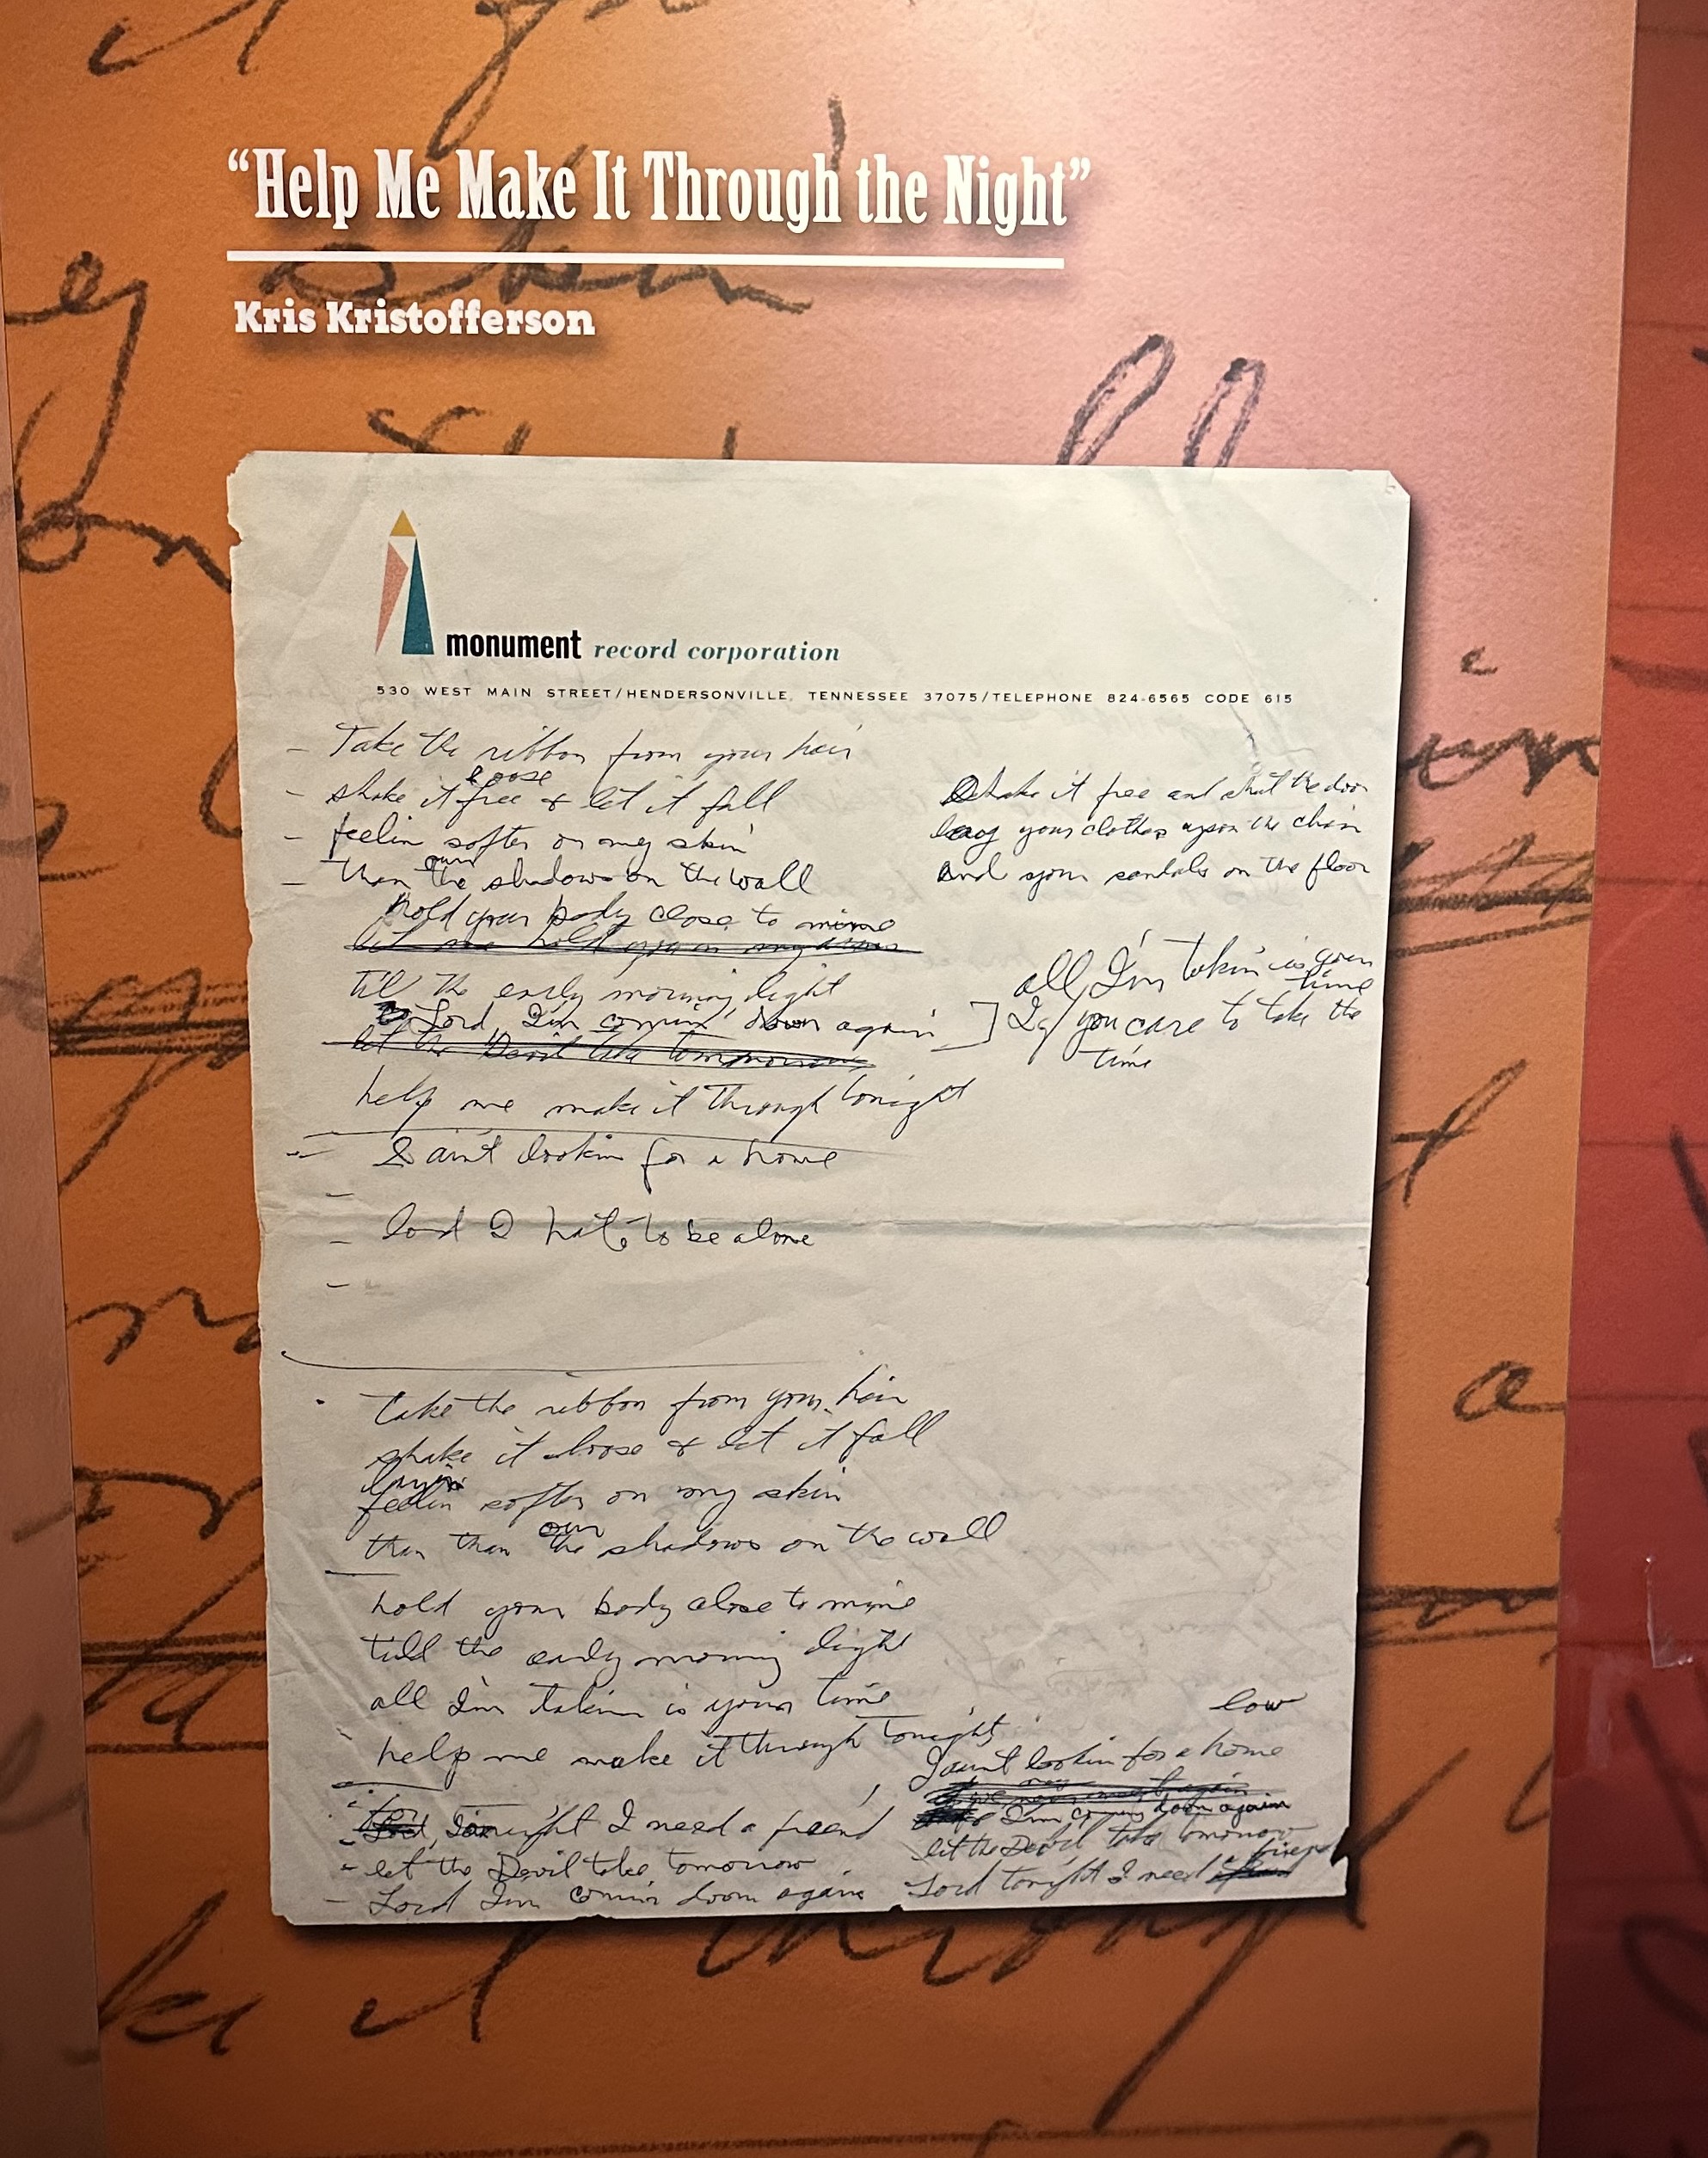 “Help Me Make It Through the Night”
Kris Kristofferson
monument record corporation
530 WEST MAIN STREET/HENDERSONVILLE, TENNESSEE 37075/TELEPHONE 824-6565 CODE 615
– Take the ribbon from your hair
loose
– shake it free & let it fall
– feelin softer on my skin
our
– than the shadows on the wall
hold your body close to mine
let me hold you in my arms
til the early morning light
Lord, I'm comin' down again
let the Devil take tomorrow
help me make it through tonight
shake it free and shut the door
your clothes upon the chair
and your sandals on the floor
all I'm takin is your
time
If you care to take the
time
– I ain't lookin for a home
–
– lord I hate to be alone
–
take the ribbon from your hair
shake it loose & let it fall
layin
feelin softer on my skin
our
than than the shadows on the wall
hold your body close to mine
till the early morning light
all I'm takin is your time
help me make it through tonight
tonight I need a friend
– let the Devil take tomorrow
– Lord I'm comin down again
low
I ain't lookin for a home
I'm coming down again
let the Devil take tomorrow
friend
Lord tonight I need a